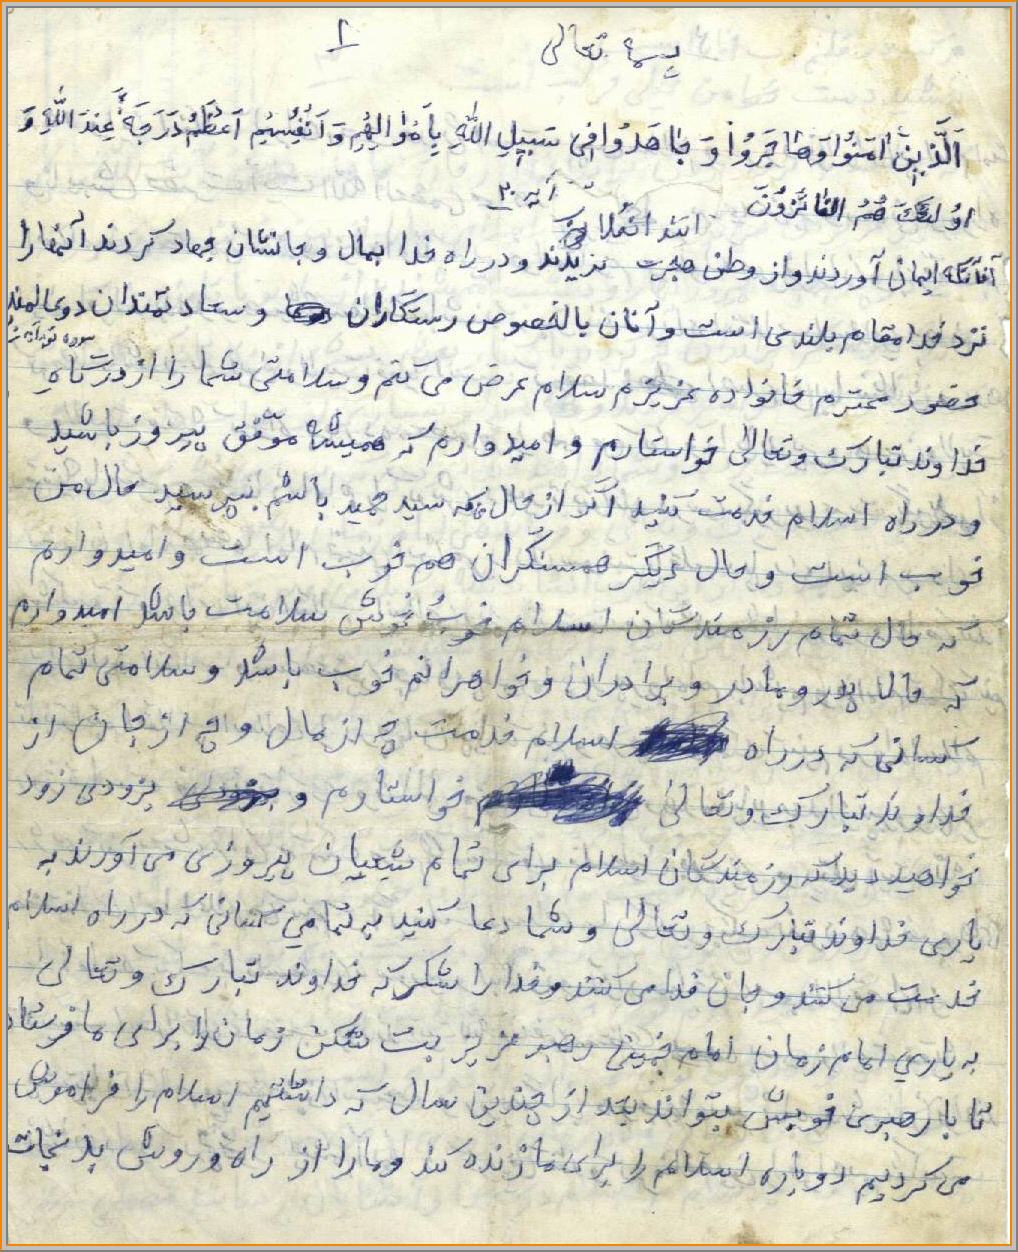 ۱
بسمه تعالی
اَلَّذینَ اٰمَنُوا وَهٰاجَرُوا وَ جٰاهَدُوا فی سَبیلِ اللّٰهِ بِاَمْوٰالِهِمِ وَ اَنْفُسِهِم اَعْظَمُ دَرَجَةً عِنْدَ اللّٰهِ وَ
اوُلئکَ هُمُ الفٰائزوُنَ آیه ۲۰
آنانکه ایمان آوردند و از وطن هجرت گزیدند و در راه خدا بمال و جانشان جهاد کردند آنها را
نزد خدا مقام بلندی است و آنان بالخصوص رستگاران و سعادتمندان دو عالمند
سوره توبه آیه
حضور محترم خانواده عزیزم سلام عرض می کنم و سلامتی شما را از درگاهِ
خداوند تبارک و تعالی خواستارم و امیدوارم که همیشه موفق پیروز باشید
و در راه اسلام خدمت کنید اگر از حال که سید حمید باشم بپرسید حال من
خوب است و حال دیگر همسنگران هم خوب است و امیدوارم
که حال تمام رزمندگان اسلام خوبُ خوش سلامت باشد امیدوارم
که حال پدر و مادر و برادران و خواهرانم خوب باشد و سلامتی تمام
کسانی که در راه اسلام خدمت چه از مال و چه از جان از
خداوند تبارک و تعالی خواستارم و بزودی زود
خواهید دید که رزمندگان اسلام برای تمام شیعیان پیروزی می آورند به
یاری خداوند تبارک و تعالی و شما دعا کنید به تمامی کسانی که در راه اسلام
خدمت می کنند و جان فدا می کنند و خدا را شکر که خداوند تبارک و تعالی
به یاری امام زمان امام خمینی رهبر عزیز بت شکن زمان را برای ما فرستاد
تا با رهبری خویش بتواند بعد از چندین سال که داشتیم اسلام را فراموش
می کردیم دوباره اسلام را برای ما زنده کند و ما را از راه و روش بد نجات